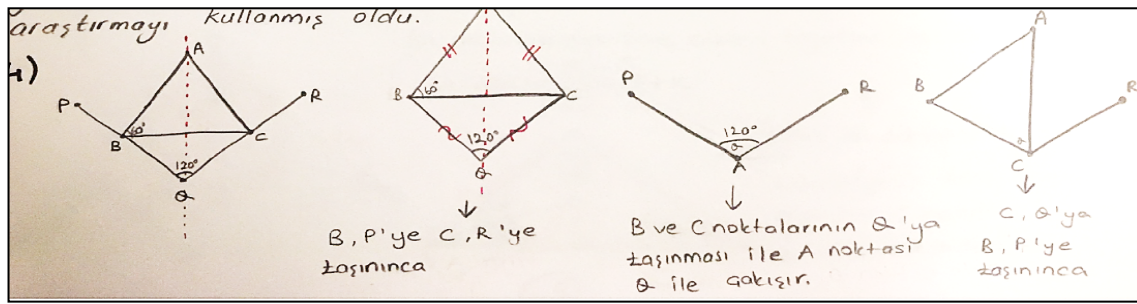 araştırmayı kullanmış oldu.
4)
A
P
R
B
60°
C
120°
Q
B
60°
C
120°
Q
B, P'ye C, R'ye
taşınınca
P
R
120°
Q
A
B ve C noktalarının Q'ya
taşınması ile A noktası
Q ile çakışır.
A
B
R
Q
C
C, Q'ya
B, P'ye
taşınınca